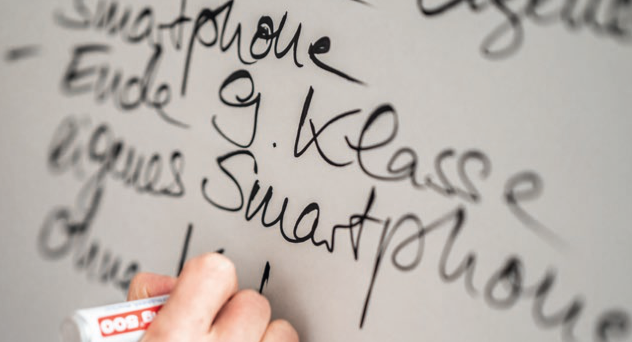 Smartphone
- Ende 9. Klasse
eigenes Smartphone
ohne
500